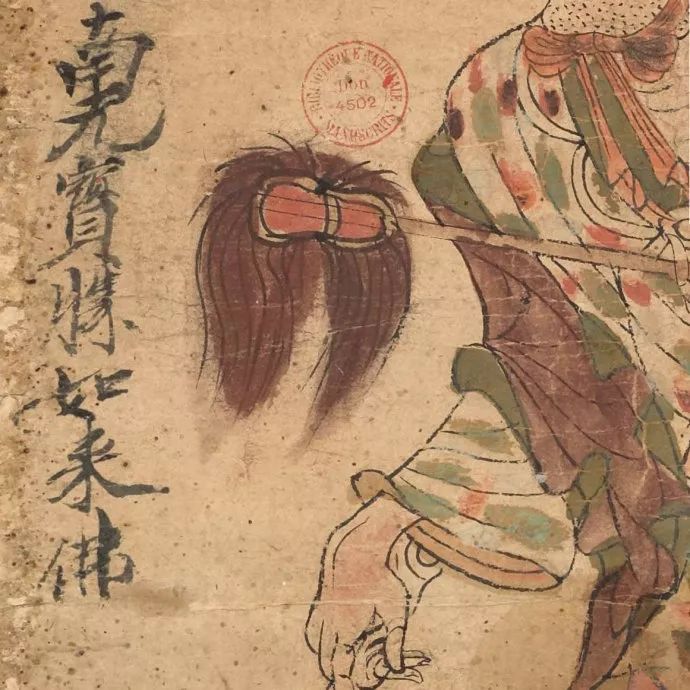 南无寶勝如来佛
BIBLIOTHÈQUE NATIONALE
DON
4502
MANUSCRITS